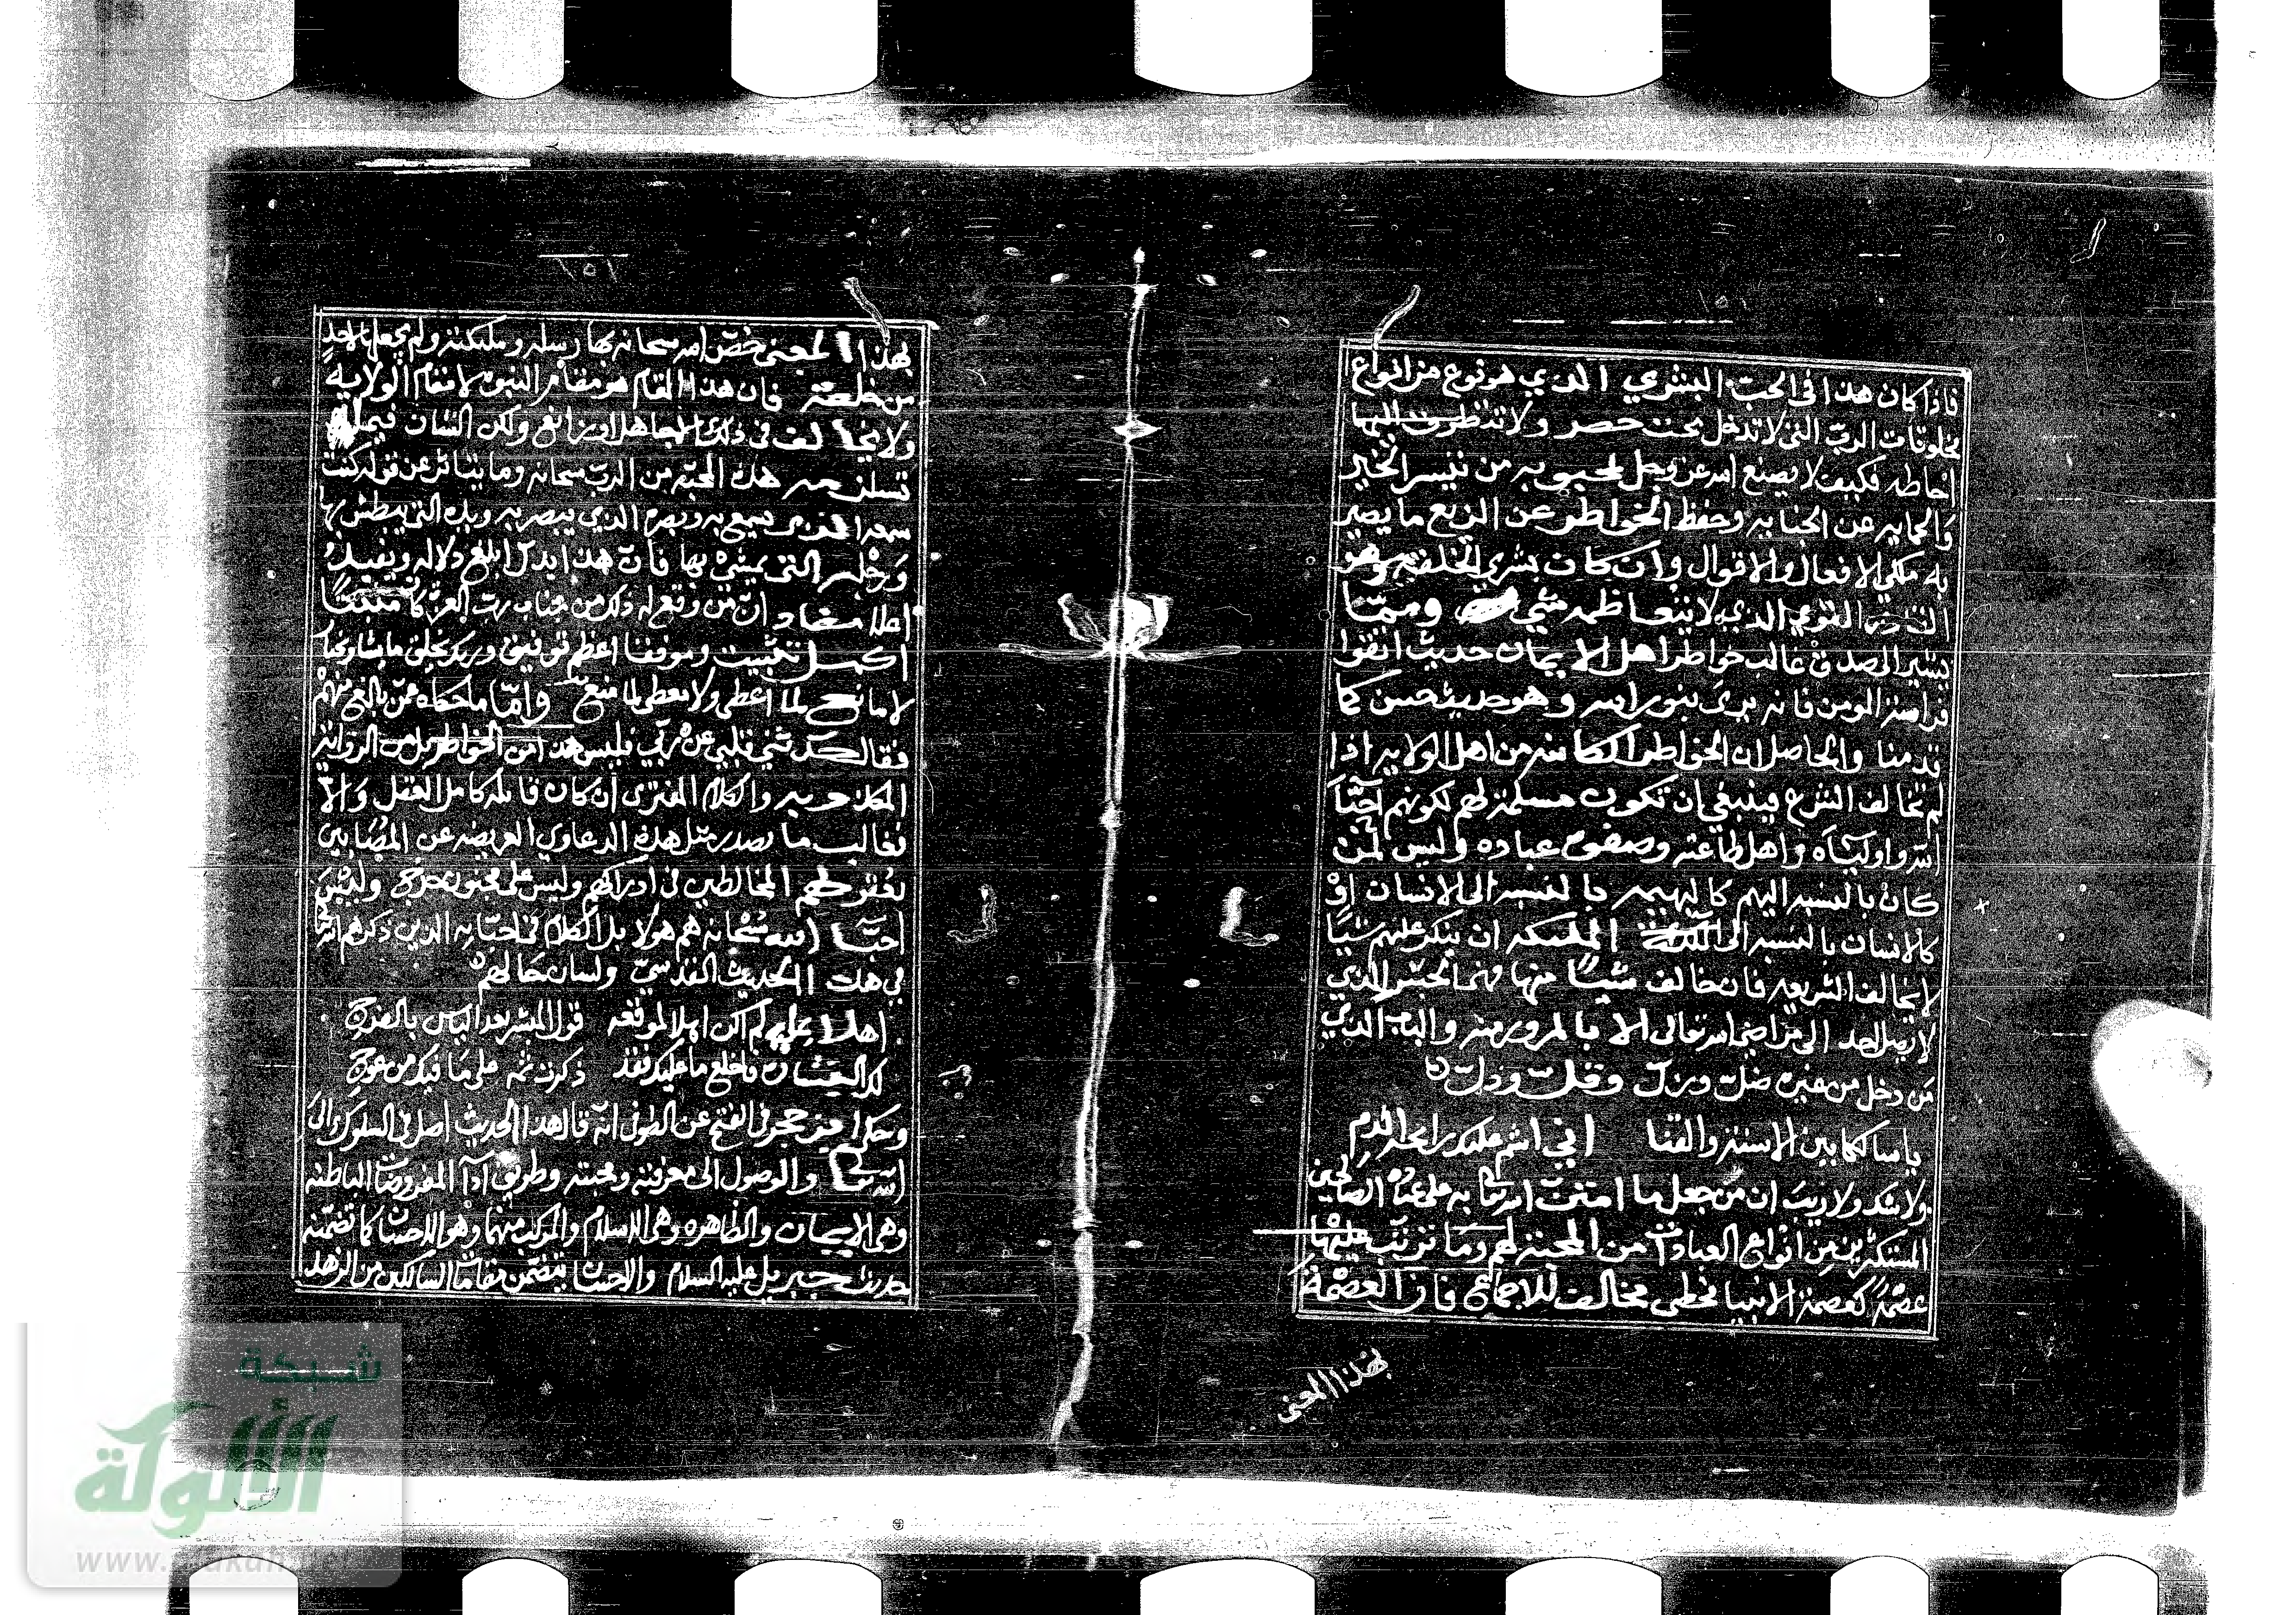 فاذا كان هذا في الحبّ البشري الذي هو نوع من انواع
مخلوقات الربّ التي لا تدخل تحت حصر ولا تتطرق اليها
احاطه فكيف لا يصنع الله عز وجل لمحبوبه من تيسر الخير
والحمايه عن الجنايه وحفظ الخواطر عن الزيغ ما يصير
به ملكي الافعال والاقوال وان كان بشري الخلقة وهو
القادر القوي الذي لا يتعاظمه شي ومما
يشير الى صدق غالب خواطر اهل الايمان حديث اتقوا
فراسة المومن فانه يرى بنور الله وهو حديث حسن كما
قدمنا والحاصل ان الخواطر الكائنه من اهل الولايه اذا
لم تخالف الشرع فينبغي ان تكون مسلمة لهم لكونهم احبّا
الله واولياه واهل طاعته وصفوه عباده وليس لمن
كان بالنسبه اليهم كالبهيمه بالنسبه الى الانسان او
كالانسان بالنسبه الى الملائكة ان ينكر عليهم شيا
لا يخالف الشريعه فان خالف شيا منها فهما الجسر الذي
لا يصل احد الى مراضي الله تعالى الا بالمرور منه والباب الذي
من دخل من غيره ضل وزل وقل وذل
يا سالكا بين الاسنة والقنا اني اشم عليك رايحة الدم
ولا شك ولا ريب ان من جعل ما امتن الله تعالى به على عباده الصالحين
المستكثرين من انواع العبادات من المحبة لهم وما ترتب عليها
عصمة كعصمة الانبيا مخطي مخالف للاجماع فان العصمة
بهذا المعنى
بهذا المعنى خصّ الله سبحانه بها رسله وملئكته ولم يجعلها لاحد
من خلقه فان هذا المقام هو مقام النبوة لا مقام الولاية
ولا يخالف في ذلك الا جاهل او زائغ ولكن الشان فيما
تسلتزمه هذه المحبه من الربّ سبحانه وما يتاثر عن قوله كنت
سمعه الذي يسمع به وبصره الذي يبصر به ويده التي يبطش بها
ورجله التي يمشي بها فان هذا يدل ابلغ دلاله ويفيد
اعلا مفاد ان من وقع له ذلك من جناب رب العزة كان مثبتا
اكمل تثبيت وموفقا اعظم توفيق وربك يخلق ما يشا ويختار
لا مانع لما اعطى ولا معطي لما منع واما ما حكاه عمن بالغ منهم
فقال حدثني قلبي عن ربي فليس هذا من الخواطر بل من الرواية
المكذوبه والكلام المفترى ان كان قائله كامل العقل والا
فغالب ما يصدر مثل هذه الدعاوي العريضه عن المصابين
بعقولهم المخالطين في ادراكهم وليس على مجنون حرج وليس
احبا الله سبحانه هم هولا بل الكلام في احبايه الذين ذكرهم الله
في هذا الحديث القدسي ولسان حالهم
اهلا بما لم اكن اهلا لموقعه قول المبشر بعد الياس بالفرج
لك البشارة فاخلع ما عليك فقد ذكرت ثم على ما فيك من عوج
وحكى ابن حجر في الفتح عن الطوفي انه قال هذا الحديث اصل في السلوك الى
الله تعالى والوصول الى معرفته ومحبته وطريق ادا المفروضات الباطنه
وهي الايمان والظاهره وهي الاسلام والمركب منهما وهو الاحسان كما تضمنه
حديث جبريل عليه السلام والاحسان يتضمن مقامات السالكين من الزهد
شبكة
الألوكة